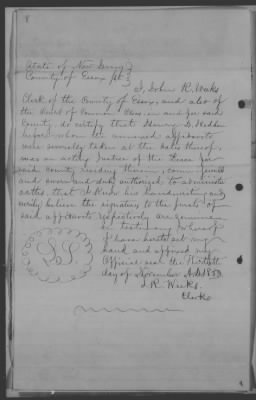 8
State of New Jersey }
County of Essex ss }
I, John R. Weeks
Clerk of the County of Essex, and also of
the Court of Common Pleas in and for said
County, do certify that Henry D.
before whom the annexed affidavits
were severally taken at the date thereof,
was an acting Justice of the Peace for
said County residing therein, commissioned
and sworn and duly authorized to administer
oaths, that I know his handwriting and
verily believe the signature to the jurats of
said affidavits respectively are genuine
In testimony whereof
I have hereto set my
hand and affixed my
Official seal the
day of November A.D. 185
J. R. Weeks
Clerk
L.S.